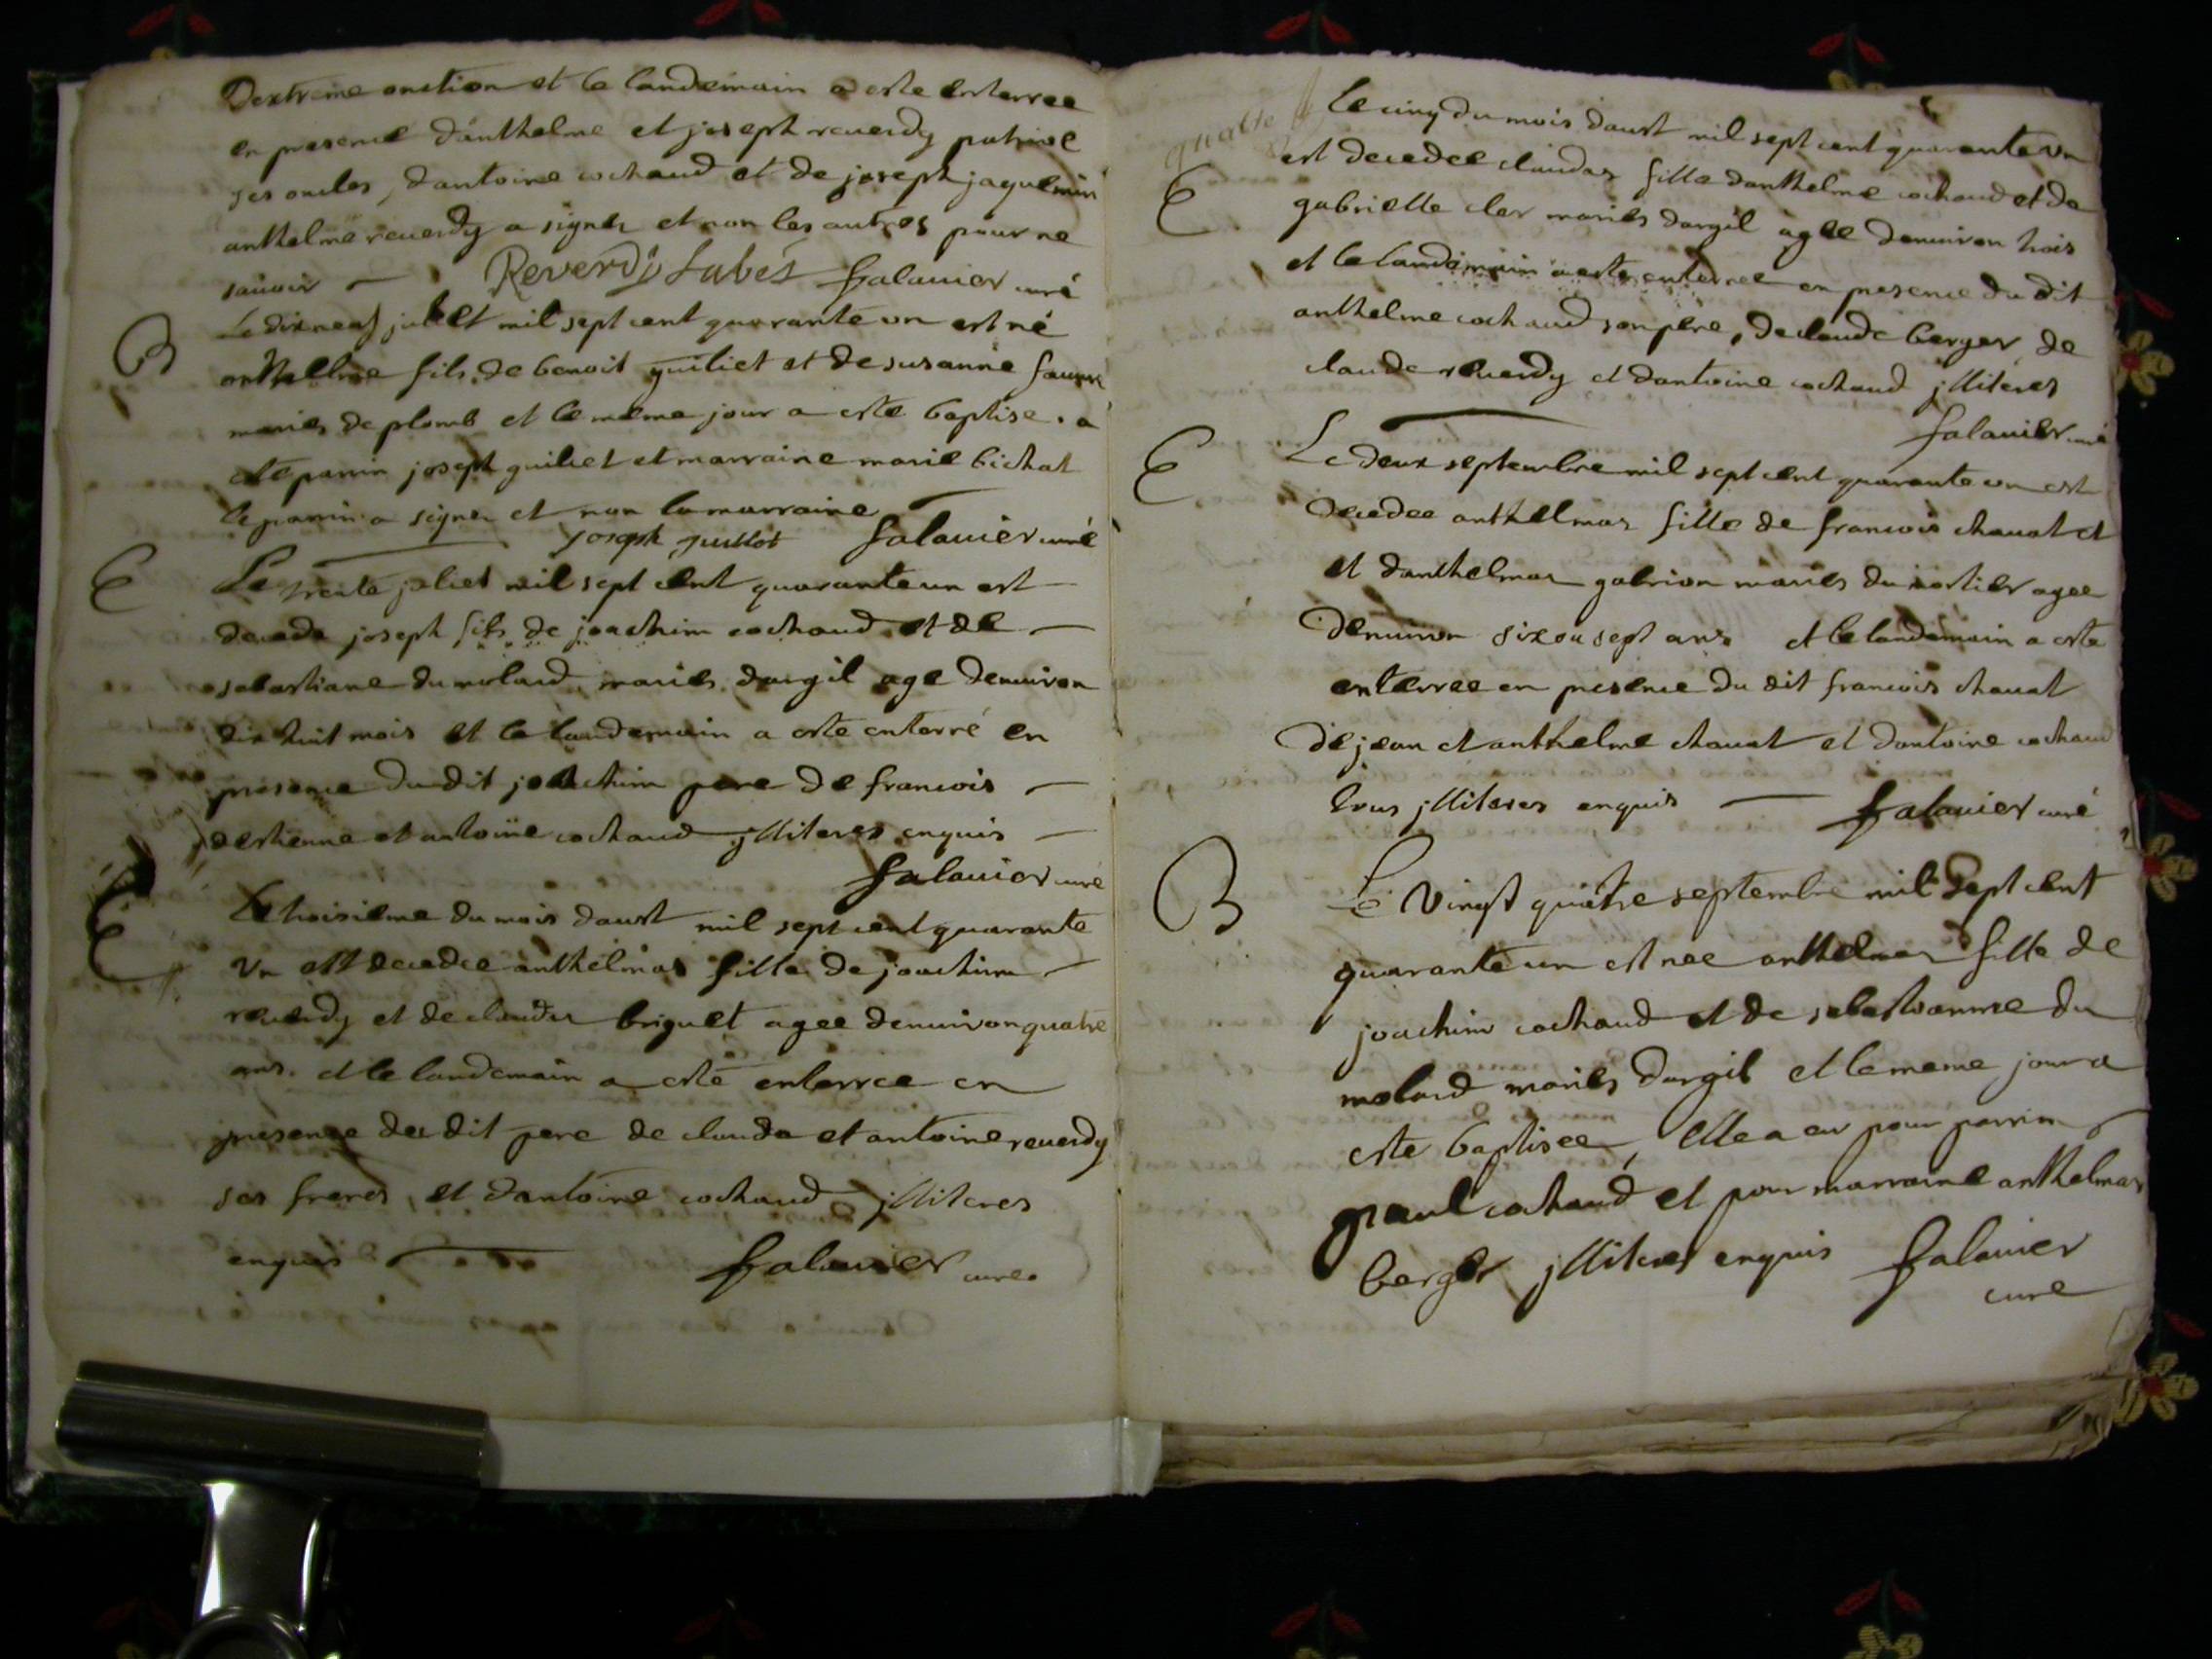 Dextreme onction et le landemain a este enterree
en presence d'anthelme et joseph reverdy patrice
ses oncles, dantoine cochaud et de joseph jaquemin
anthelme reverdy a signer et non les autres pour ne
sauoir Reverdy falauier curé
B
Le dix neuf juliet mil sept cent quarante un est né
anthelme fils de benoit guiliet et de susanne
mariés de plomb et le meme jour a este baptise. a
ete parrin joseph guiliet et marraine marie bichat
le parrin a signer et non la marraine
joseph guillot falauier curé
E
Le trente juliet mil sept cent quarante un est
decede joseph fils de joachim cochaud et de
sebastiane du molard mariés dargil age denuiron
dix huit mois et le landemain a este enterré en
presence du dit joachim pere de francois
destienne et antoine cochaud jlliteres enquis
falauier curé
E
Le troisieme du mois daust mil sept cent quarante
un est decedee anthelmas fille de joachim
reverdy et de claudas briguet agee denuiron quatre
ans. et le landemain a esté enterree en
presence du dit pere de claude et antoine reuerdy
ses freres, et dantoine cochaud jlliteres
enquis falauier cure.
quatre
E
Le cinq du mois daust mil sept cent quarante un
est decedee claudas fille danthelme cochaud et de
gabrielle cler mariés dargil agee denuiron trois
et le landemain a este enterree en presence du dit
anthelme cochaud son père, de claude berger, de
claude reuerdy et dantoine cochaud jlliteres
falauier curé
E
Le deux septembre mil sept cent quarante un est
decedee anthelmas fille de francois chauat et
et danthelmas gabrion mariés du agee
denuiron six ou sept ans et le landemain a este
enterree en presence du dit francois chauat
de jean et anthelme chauat et dantoine cochaud
tous jlliteres enquis falauier curé
B
Le vingt quatre septembre mil sept cent
quarante un est nee anthelmas fille de
joachim cochaud et de sebastianne du
molard mariés dargil et le meme jour a
este baptisee, elle a eu pour parrin
paul cochaud et pour marraine anthelmas
berger jlliteres enquis falauier
cure